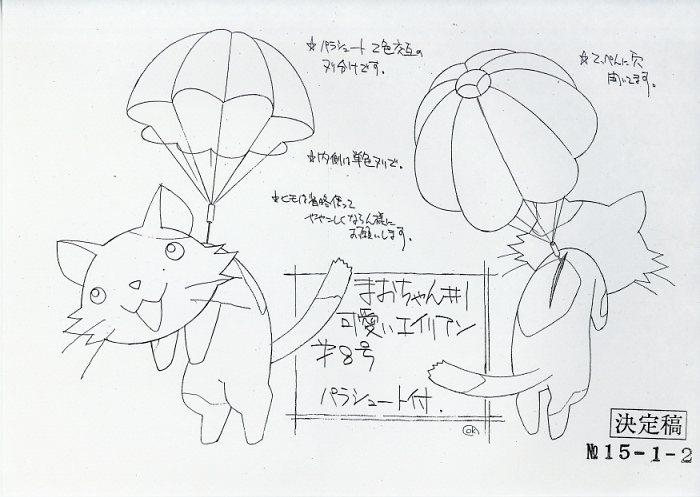 ☆パラシュート2色交互の
ヌリ分けです。
☆てっぺんに穴
開いてます。
☆内側は単色ヌリで。
☆ヒモは省略使って
ややこしくならん様に
お願いします。
まおちゃん#1
可愛いエイリアン
#8号
パラシュート付.
決定稿
№15-1-2